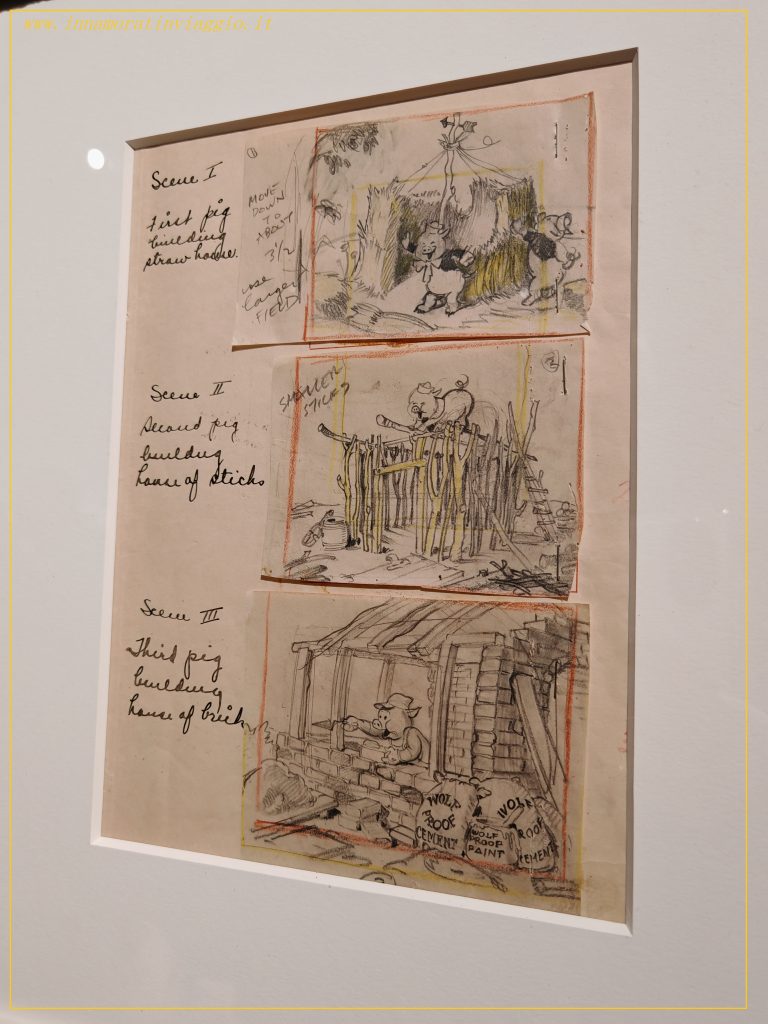 www.innamoratinviaggio.it
Scene I
First pig
building
straw house.
1
MOVE
DOWN
TO
ABOUT
3 1/2
use
larger
FIELD
Scene II
Second pig
building
house of sticks
SMALLER
STICKS
2
Scene III
Third pig
building
house of brick
WOLF
PROOF
CEMENT
WOLF
PROOF
PAINT
WOLF
PROOF
CEMENT